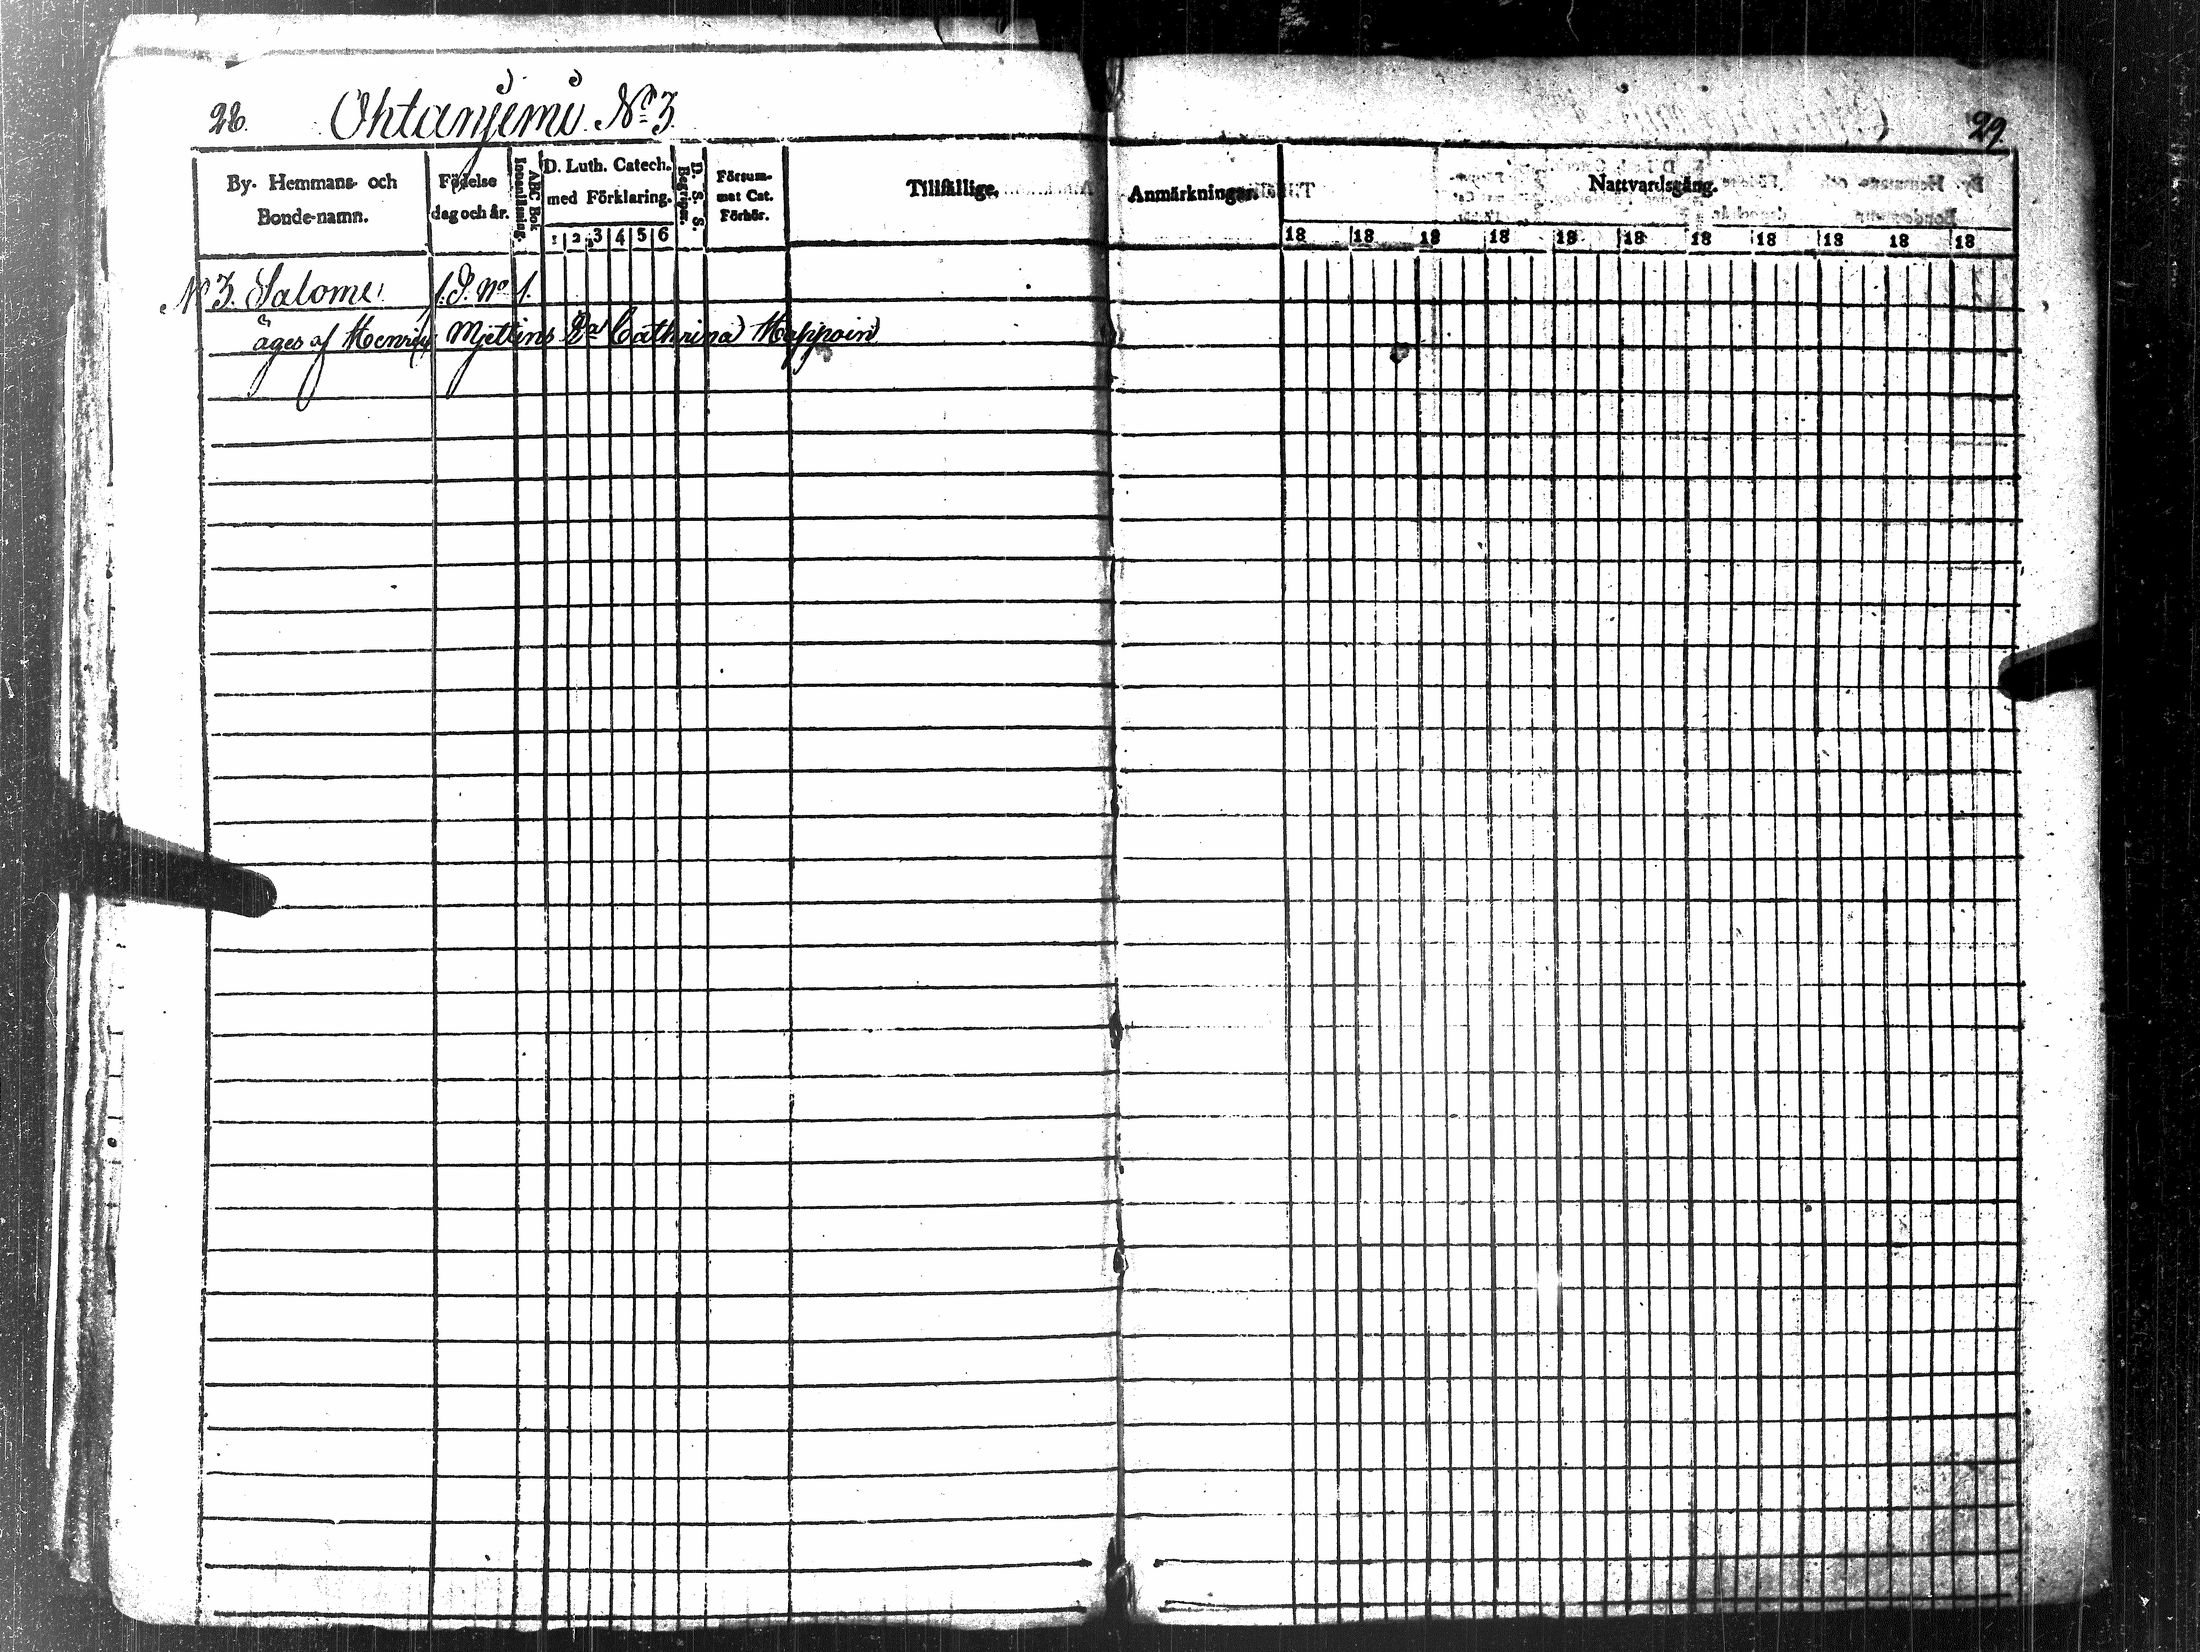 28. Ohtanjemi. No 3.
29.
By- Hemmans- och Bonde-namn.
Födelse dag och år.
ABC Bok Innanläsning.
D. Luth. Catech. med Förklaring.
1 2 3 4 5 6
D. S. S. Begrepp.
Försummat Cat. Förhör.
Tillfällige,
Anmärkningar.
Nattvardsgång.
18 18 18 18 18 18 18 18 18 18 18
No 3. Salome 1. No 1.
äges af Henric Cathrina Happoin